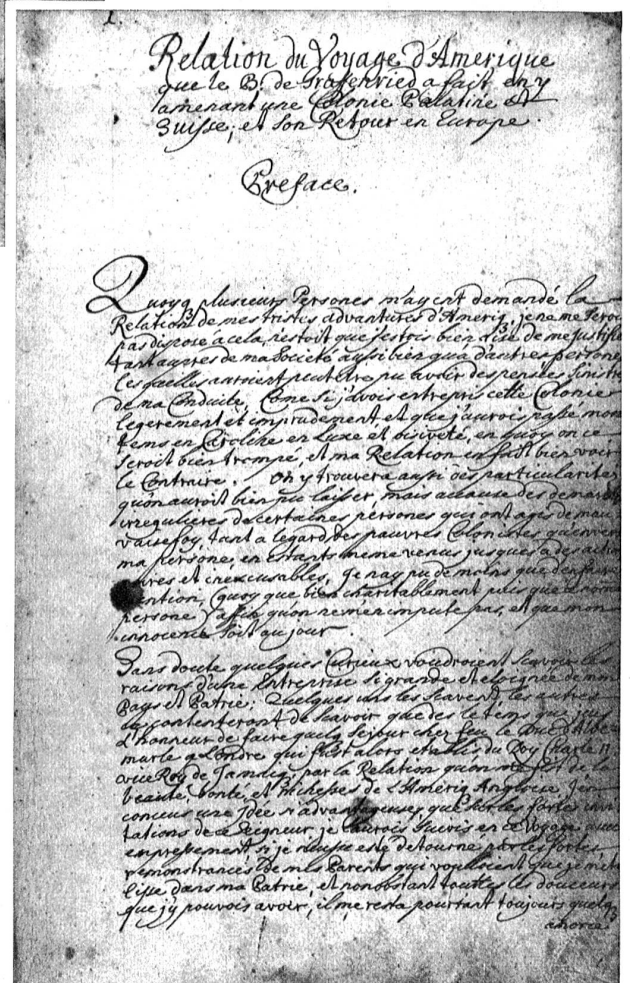 1.
Relation du Voyage d'Amerique
que le B. de Graffenried a fait en y
amenant une Colonie Palatine et
Suisse, et son Retour en Europe.
Preface.
Quoyq plusieurs Persones m'ayent demandé la
Relation de mes tristes advantures d'Ameriq, je ne me serois
pas disposé a cela, n'estoit que j'estois bien aise de me justifie
tant aupres de ma Société aussi bien qua d'autres persone
lesquelles auroient peut etre pu avoir des pensées sinistre
de ma Conduite, Come si j'avois entrepris cette Colonie
legerement et imprudement, et que j'aurois passé mon
tems en Caroline en Luxe et oisiveté, en quoy on se
seroit bien trompé, et ma Relation en fait bien voir
le Contraire. On y trouvera aussi des particularites
qu'on auroit bien pu laisser, mais a cause des demar
irregulieres de certaines persones qui ont agis de mau
vaise foy, tant a legard des pauvres Colonistes qu'enver
ma persone, en estants meme venus jusques a des action
et inexcusables, Je nay pu de moins que d'en faire
mention, (quoy que bien charitablement plus que
persone) afin qu'on ne m'en impute pas, et que mon
innocence soit au jour.
Sans doute quelques Curieux voudroient scavoir les
raisons d'une Entreprise si grande et eloignée de mon
Pays et Patrie; Quelques uns les scavent, les autres
se contenteront de scavoir que des le tems que j'eus
l'honneur de faire quelq sejour chez feu le Duc d'Albe
marle a Londre qui fust alors establis du Roy Charle II
vice Roy de Jamaiq, par la Relation qu'on me fist de la
beauté, bonté, et richesses de l'Ameriq Angloise, J'en
conceus une Idée si advantageuse, que sur les fortes invi
tations de ce Seigneur je l'aurois suivis en ce Voyage avec
empressement, si je n'eusse esté detourné par les fortes
remonstrances de mes Parents qui vouloient que je m'eta
blisse dans ma Patrie, et nonobstant touttes les douceurs
que j'y pouvois avoir, il me resta pourtant toujours quelq
amorce